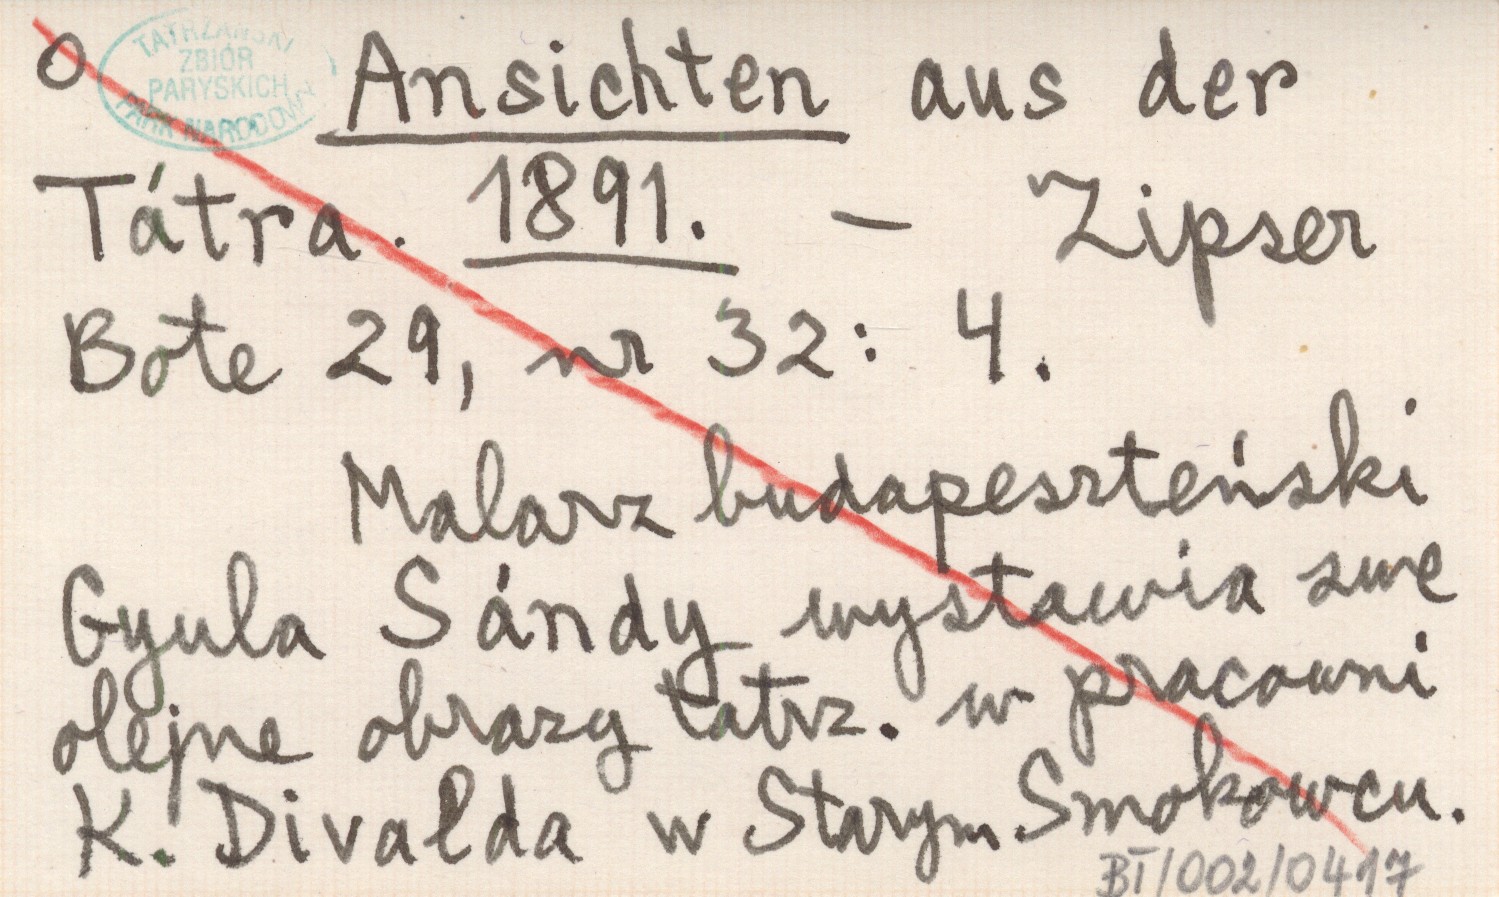 O TATRZAŃSKI
ZBIÓR
PARYSKICH
PARK NARODOWY
Ansichten aus der
Tátra. 1891. — Zipser
Bote 29, nr 32: 4.
Malarz budapeszteński
Gyula Sándy wystawia swe
olejne obrazy tatrz. w pracowni
K. Divalda w Starym Smokowcu.
BT/002/0417